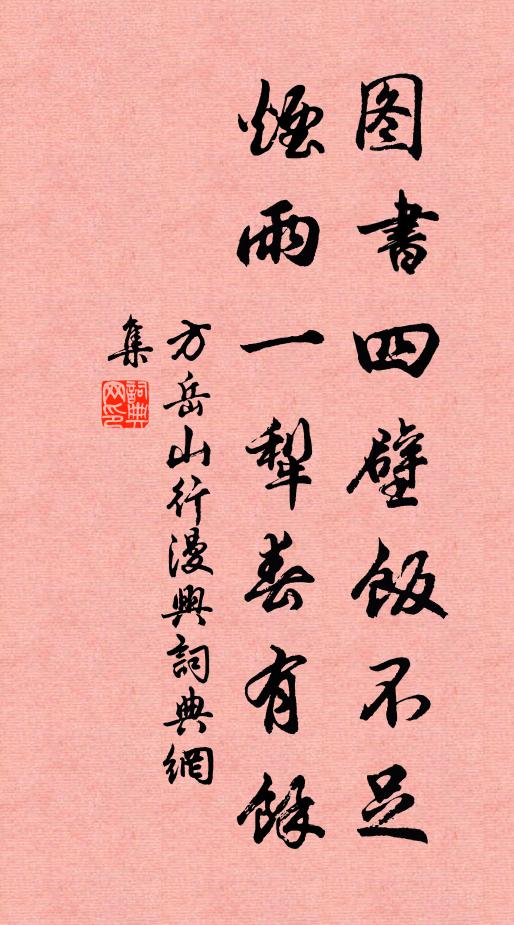 图書四壁飯不足
煙雨一犁春有餘
方岳山行漫興詞典網
集
詞典
网印